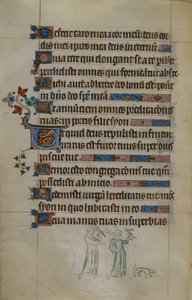 Defecit caro mea et cor meu deus cor
dis mei et pars mea deus in eternu
Quia ecce qui elongant se a te
perdidisti omnes qui fornicat abs te
Michi aute adherere deo bonu est
in dno deo spem mea
Ut annunciem omnes predicacões
tuas in portis filie syon
Ut quid deus repulisti in finem
iratus est furor tuus super oues
pascue tue
Memor esto congregacõis tue
possedisti ab inicio
Redemisti uirga hereditatis tue mos
syon in quo habitasti in eo
Leua manus tuas in superbias